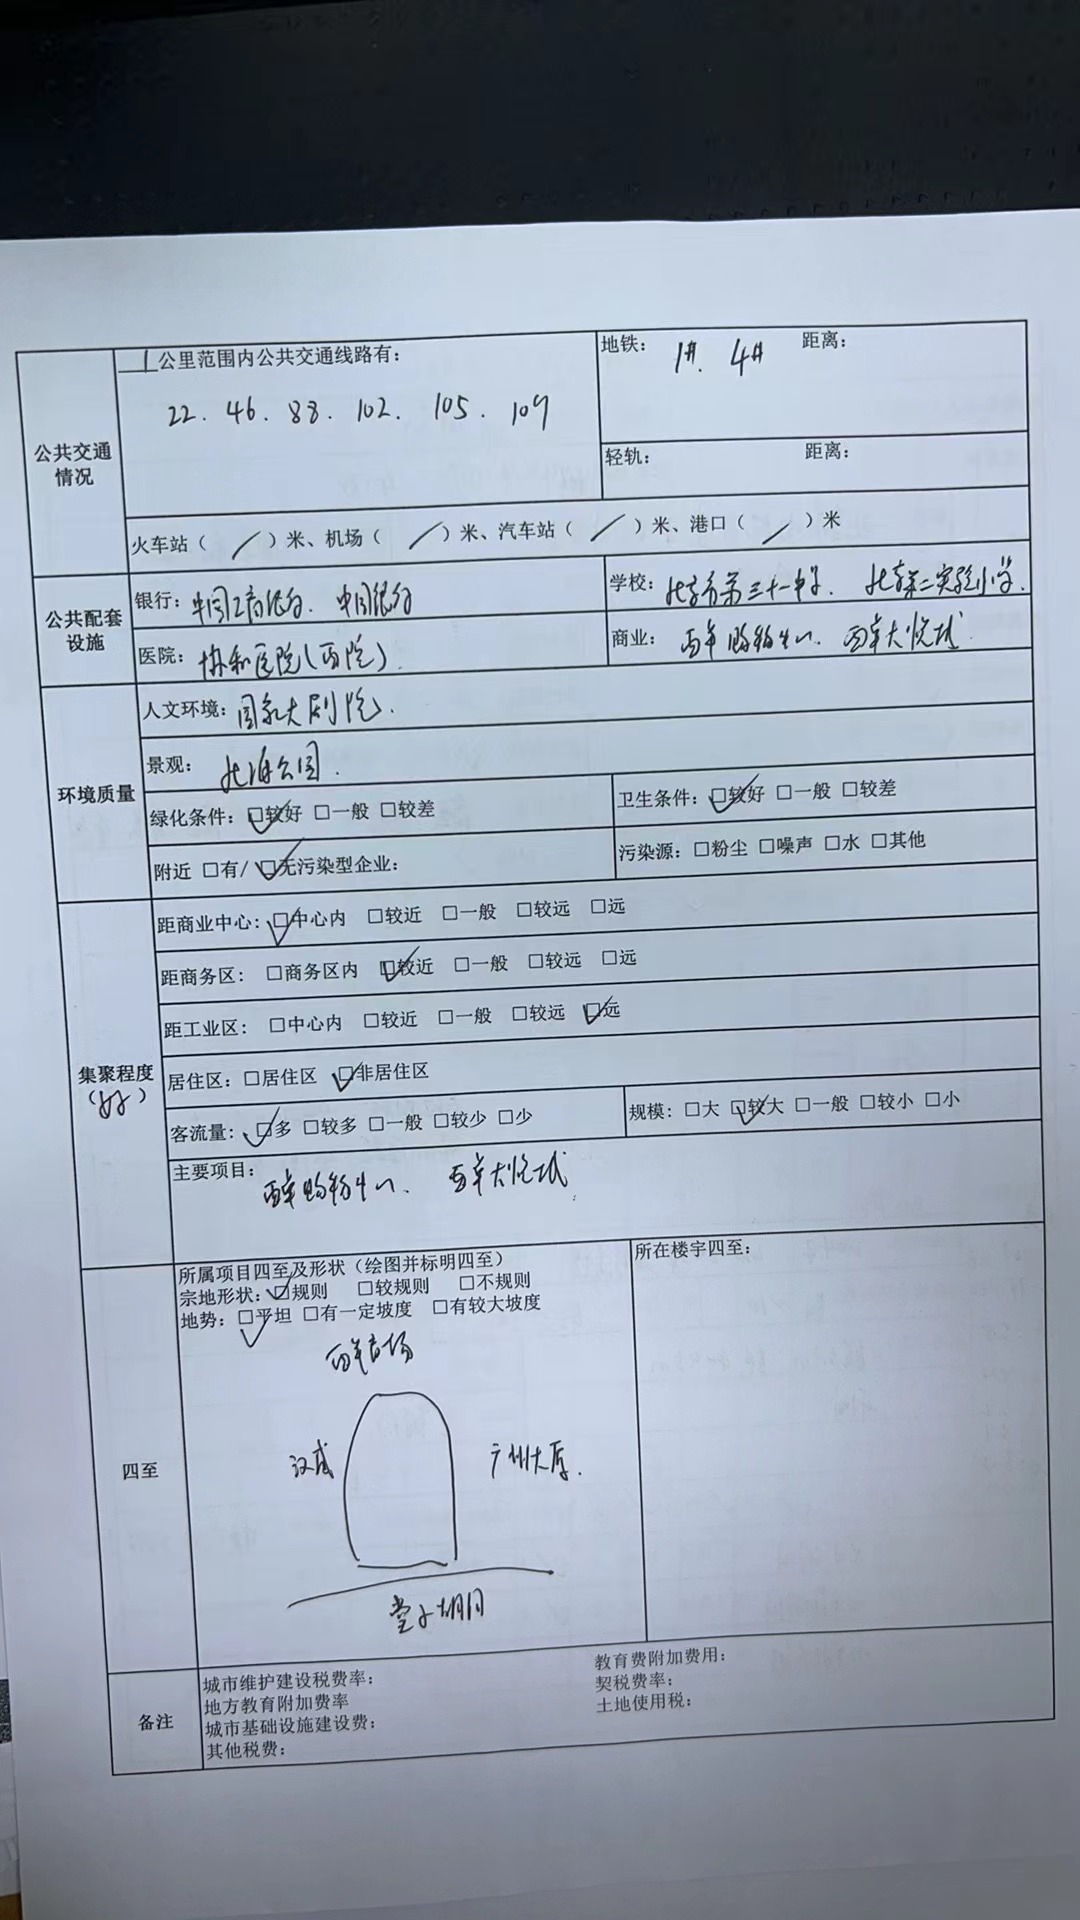 1公里范围内公共交通线路有：
22. 46. 88. 102. 105. 109
地铁： 1#. 4# 距离：
轻轨： 距离：
公共交通
情况
火车站（ / ）米、机场（ / ）米、汽车站（ / ）米、港口（ / ）米
公共配套
设施
银行：中国工商银行. 中国银行
学校：北京市第三十一中学. 北京第二实验小学.
医院：协和医院（西院）.
商业：西单购物中心. 西单大悦城.
环境质量
人文环境：国家大剧院.
景观： 北海公园.
绿化条件：☑较好 □一般 □较差
卫生条件：☑较好 □一般 □较差
附近 □有/ ☑无污染型企业：
污染源：□粉尘 □噪声 □水 □其他
集聚程度
（好）
距商业中心：☑中心内 □较近 □一般 □较远 □远
距商务区： □商务区内 ☑较近 □一般 □较远 □远
距工业区： □中心内 □较近 □一般 □较远 ☑远
居住区：□居住区 ☑非居住区
客流量：☑多 □较多 □一般 □较少 □少
规模：□大 ☑较大 □一般 □较小 □小
主要项目：西单购物中心、西单大悦城
四至
所属项目四至及形状（绘图并标明四至）
宗地形状：☑规则 □较规则 □不规则
地势：☑平坦 □有一定坡度 □有较大坡度
西单商场
汉威
广州大厦.
堂子胡同
所在楼宇四至：
备注
城市维护建设税费率：
地方教育附加费率
城市基础设施建设费：
其他税费：
教育费附加费用：
契税费率：
土地使用税：